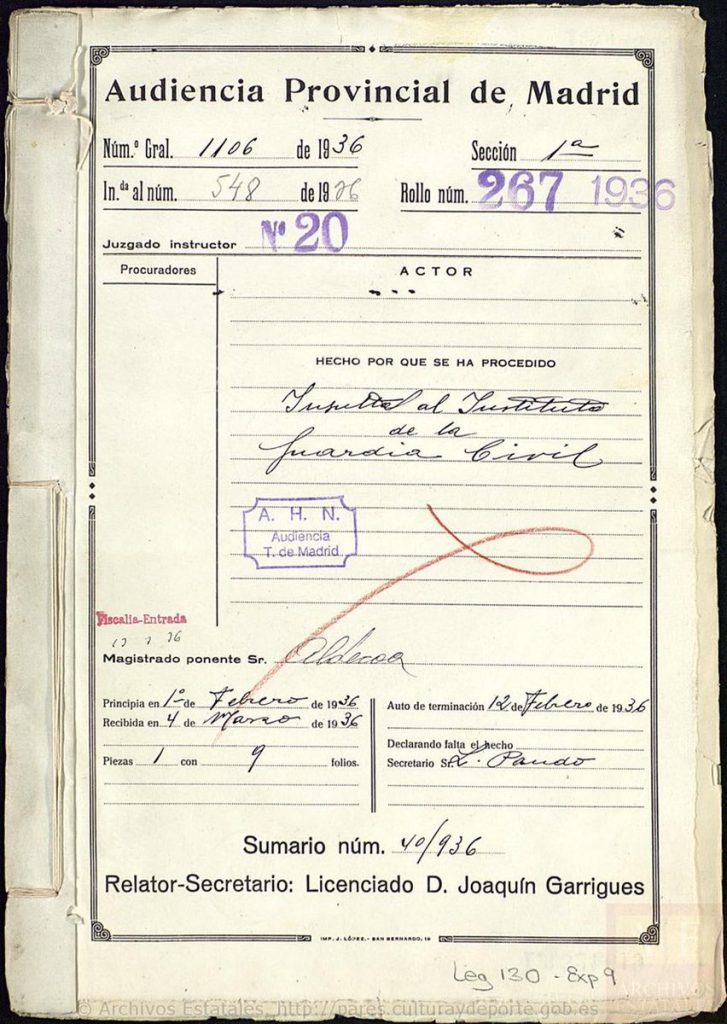 Audiencia Provincial de Madrid
Núm.º Gral. 1106 de 1936 Sección 1ª
In.da al núm. 548 de 1936 Rollo núm. 267 1936
Juzgado instructor Nº 20
Procuradores
ACTOR
HECHO POR QUE SE HA PROCEDIDO
Insulto al Instituto
de la
Guardia Civil
A. H. N.
Audiencia
T. de Madrid
Fiscalia-Entrada
Magistrado ponente Sr.
Principia en 1º de Febrero de 1936
Recibida en 4 de Marzo de 1936
Piezas 1 con 9 folios.
Auto de terminación 12 de Febrero de 1936
Declarando falta el hecho
Secretario Sr. L. Pando
Sumario núm. 40/936
Relator-Secretario: Licenciado D. Joaquín Garrigues
IMP. J. LÓPEZ.- SAN BERNARDO, 19
Leg 130 - Exp 9
© Archivos Estatales, http://pares.culturaydeporte.gob.es